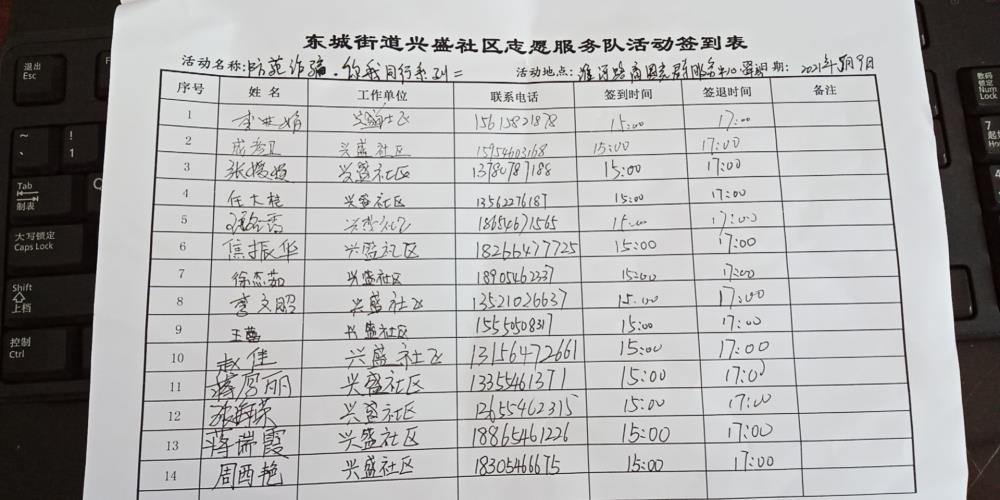 东城街道兴盛社区志愿服务队活动签到表
活动名称:防范诈骗·你我同行系列二 活动地点: 日期: 2021年5月9日
序号 姓名 工作单位 联系电话 签到时间 签退时间 备注
1 兴盛社区 15615821878 15:00 17:00
2 兴盛社区 15954603168 15:00 17:00
3 兴盛社区 13780787188 15:00 17:00
4 任大桂 兴盛社区 13562276187 15:00 17:00
5 兴盛社区 18654671565 15:00 17:00
6 焦振华 兴盛社区 18266477725 15:00 17:00
7 徐杰茹 兴盛社区 18905462337 15:00 17:00
8 李文昭 兴盛社区 13521026637 15:00 17:00
9 兴盛社区 15550508317 15:00 17:00
10 赵佳 兴盛社区 13156472661 15:00 17:00
11 兴盛社区 13355461371 15:00 17:00
12 张海荣 兴盛社区 15:00 17:00
13 蒋瑞霞 兴盛社区 18865461226 15:00 17:00
14 周西艳 兴盛社区 18305466675 15:00 17:00
退出
Esc
Tab
制表
大写锁定
Caps Lock
Shift
上档
控制
Ctrl
数码
锁定
Num
Lock